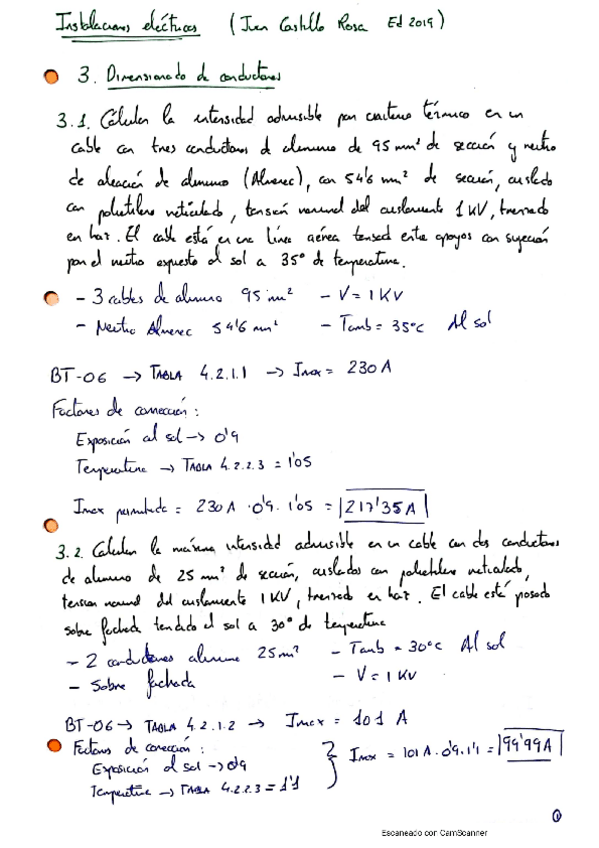 Instalaciones eléctricas (Juan Castillo Rosa Ed 2019)
3. Dimensionado de conductores
3.1. Calcular la intensidad admisible por criterio térmico en un
cable con tres conductores de aluminio de 95 mm² de sección y neutro
de aleación de aluminio (Almelec), con 54'6 mm² de sección, aislado
con polietileno reticulado, tensión nominal del aislamiento 1 KV, trenzado
en haz. El cable está en una línea aérea tensada entre apoyos con sujeción
por el neutro expuesto al sol a 35° de temperatura.
- 3 cables de aluminio 95 mm² - V = 1 KV
- Neutro Almelec 54'6 mm² - Tamb = 35°C Al sol
BT-06 → TABLA 4.2.1.1 → Imax = 230 A
Factores de corrección:
Exposición al sol → 0'9
Temperatura → TABLA 4.2.2.3 = 1'05
Imax permitida = 230 A · 0'9 · 1'05 = 217'35 A
3.2. Calcular la máxima intensidad admisible en un cable con dos conductores
de aluminio de 25 mm² de sección, aislados con polietileno reticulado,
tensión nominal del aislamiento 1 KV, trenzado en haz. El cable está posado
sobre fachada tendido al sol a 30° de temperatura
- 2 conductores aluminio 25 mm² - Tamb = 30°C Al sol
- Sobre fachada - V = 1 KV
BT-06 → TABLA 4.2.1.2 → Imax = 101 A
Factores de corrección:
Exposición al sol → 0'9
Temperatura → TABLA 4.2.2.3 = 1'1
} Imax = 101 A · 0'9 · 1'1 = 99'99 A
1
Escaneado con CamScanner